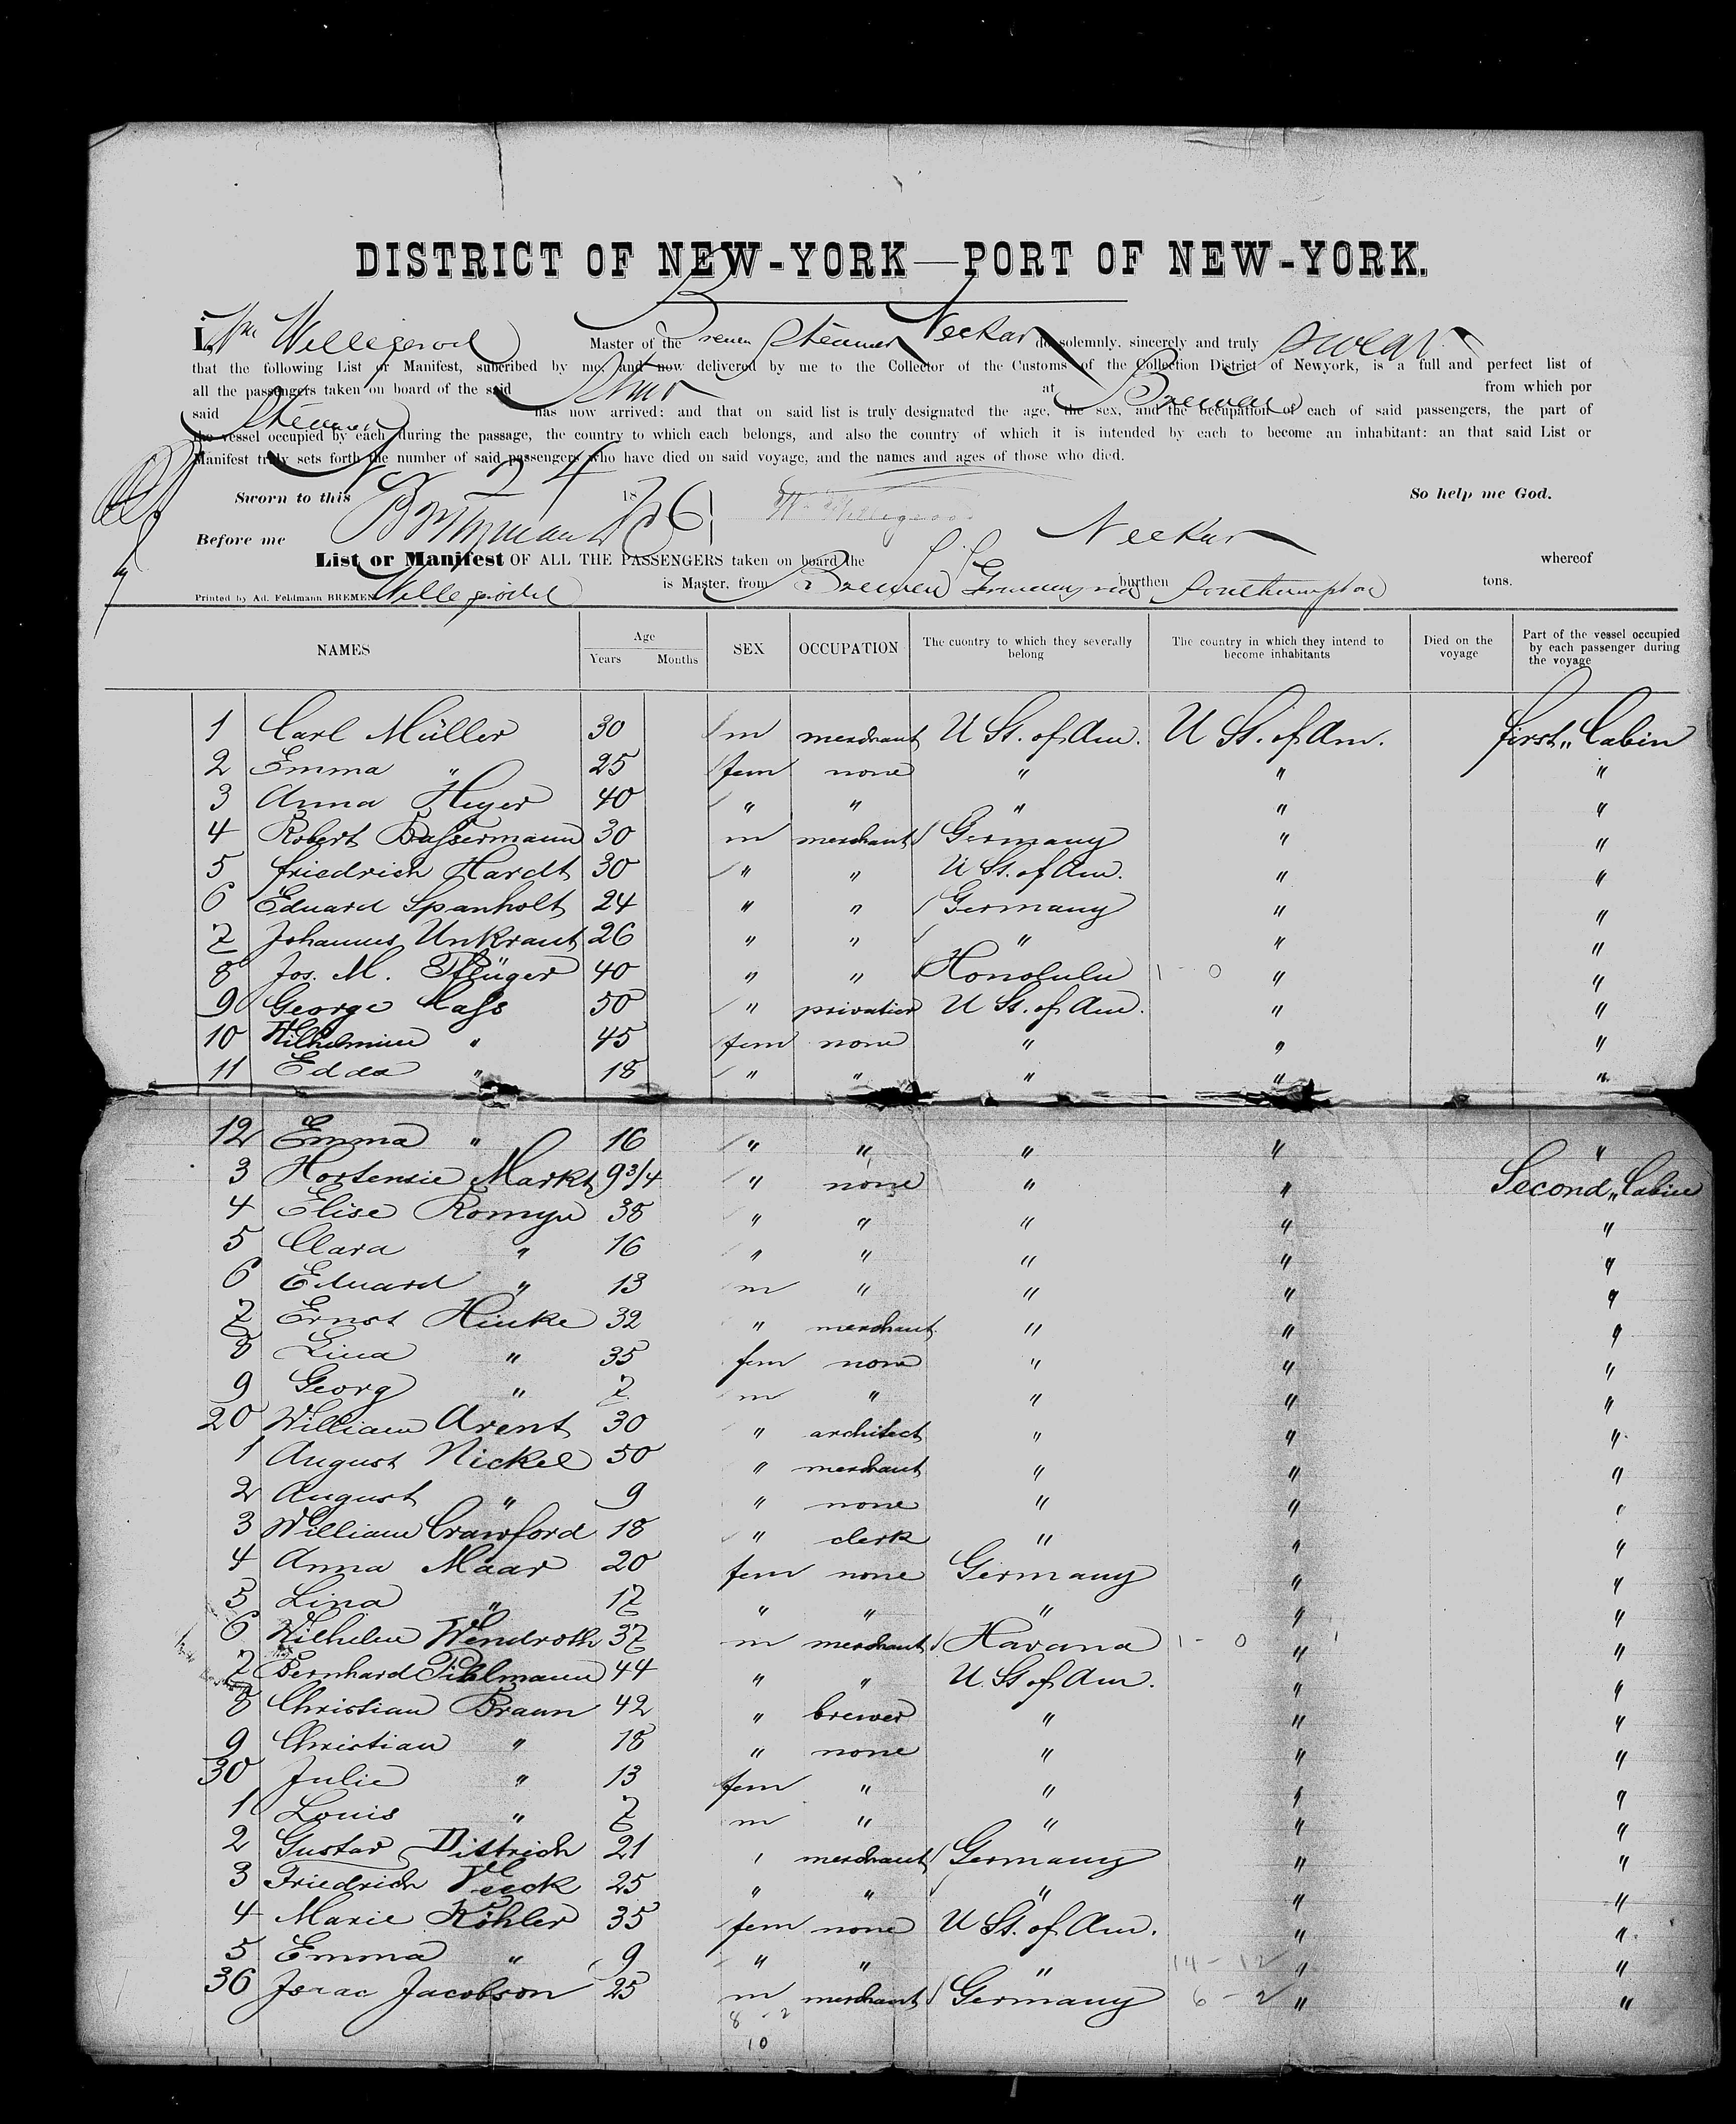 DISTRICT OF NEW-YORK—PORT OF NEW-YORK.
I, Wm Willigerod Master of the Bremen Steamer Neckar do solemnly, sincerely and truly swear
that the following List or Manifest, subcribed by me, and now delivered by me to the Collector of the Customs of the Collection District of Newyork, is a full and perfect list of
all the passengers taken on board of the said Stmr at Bremen from which por
said Steamer has now arrived: and that on said list is truly designated the age, the sex, and the occupation of each of said passengers, the part of
the vessel occupied by each during the passage, the country to which each belongs, and also the country of which it is intended by each to become an inhabitant: an that said List or
Manifest truly sets forth the number of said passengers who have died on said voyage, and the names and ages of those who died.
Sworn to this 24 1876 So help me God.
Before me
List or Manifest OF ALL THE PASSENGERS taken on board the S.S. Neckar whereof
Printed by Ad. Feldmann BREMEN Willigerod is Master, from Bremen Germany via burthen Southampton tons.
NAMES Age Years Months SEX OCCUPATION The cuontry to which they severally belong The country in which they intend to become inhabitants Died on the voyage Part of the vessel occupied by each passenger during the voyage
1 Carl Müller 30 m merchant U St. of Am. U St. of Am. first " Cabin
2 Emma " 25 fem none " " "
3 Anna Heyer 40 " " " " "
4 Robert Bassermann 30 m merchant Germany " "
5 Friedrich Hardt 30 " " U St. of Am. " "
6 Eduard Spanholt 24 " " Germany " "
7 Johannes Unkraut 26 " " " " "
8 Jos. M. Pflüger 40 " " Honolulu 1 - 0 " "
9 George Hass 50 " privatier U St. of Am. " "
10 Wilhelmine " 45 fem none " " "
11 Edda " 18 " " " " "
12 Emma " 16 " " " " "
3 Hortensie Markt 9 3/4 " none " " Second " Cabin
4 Elise Romyn 38 " " " " "
5 Clara " 16 " " " " "
6 Eduard " 13 m " " " "
7 Ernst Hinke 32 " merchant " " "
8 Lina " 35 fem none " " "
9 Georg " 7 m " " " "
20 William Arent 30 " architect " " "
1 August Nickel 50 " merchant " " "
2 August " 9 " none " " "
3 William Crawford 18 " clerk " " "
4 Anna Maar 20 fem none Germany " "
5 Lina " 17 " " " " "
6 Wilhelm Wendroth 37 m merchant Havana 1 - 0 " "
7 Bernhard 44 " " U. St of Am. " "
8 Christian Braun 42 " brewer " " "
9 Christian " 18 " none " " "
30 Julie " 13 fem " " " "
1 Louis " 7 m " " " "
2 Gustav Dittrich 21 " merchant Germany " "
3 Friedrich Veeck 25 " " " " "
4 Marie Köhler 35 fem none U St. of Am. " "
5 Emma " 9 " " " 14 - 12 " "
36 Isaac Jacobson 25 m merchant Germany 6 - 2 " "
8 - 2
10